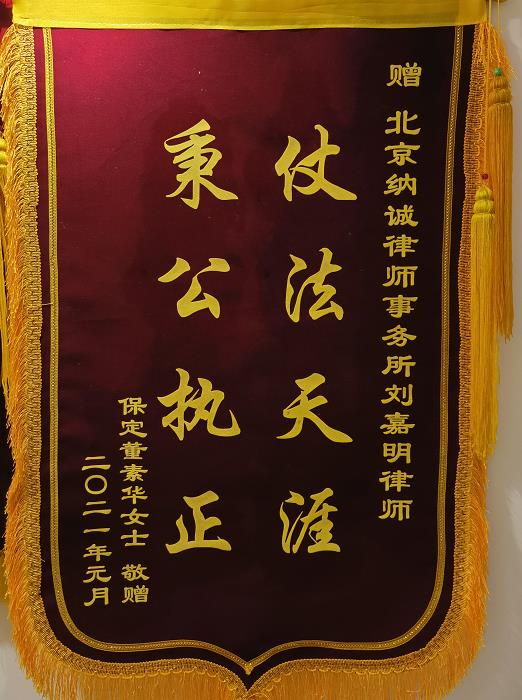 赠 北京纳诚律师事务所刘嘉明律师
仗法天涯
秉公执正
保定董素华女士 敬赠
二〇二一年元月